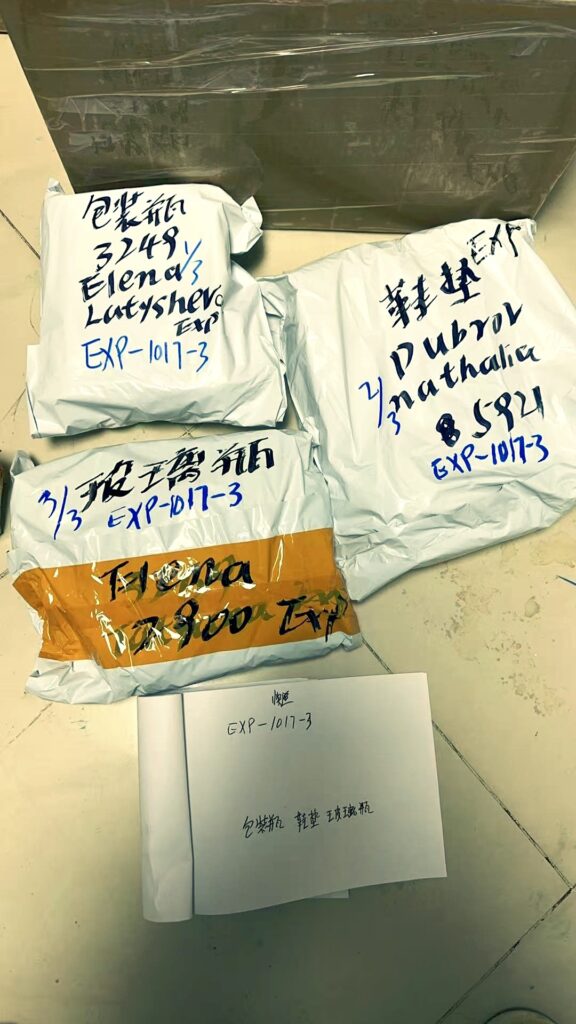 包装瓶
3249
1/3
Elena
Latysheva
Exp
EXP-1017-3
EXP
鞋垫
Dubrov
nathalia
2/3
85921
EXP-1017-3
3/3 玻璃瓶
EXP-1017-3
Elena
7900 Exp
EXP-1017-3
包装瓶 鞋垫 玻璃瓶